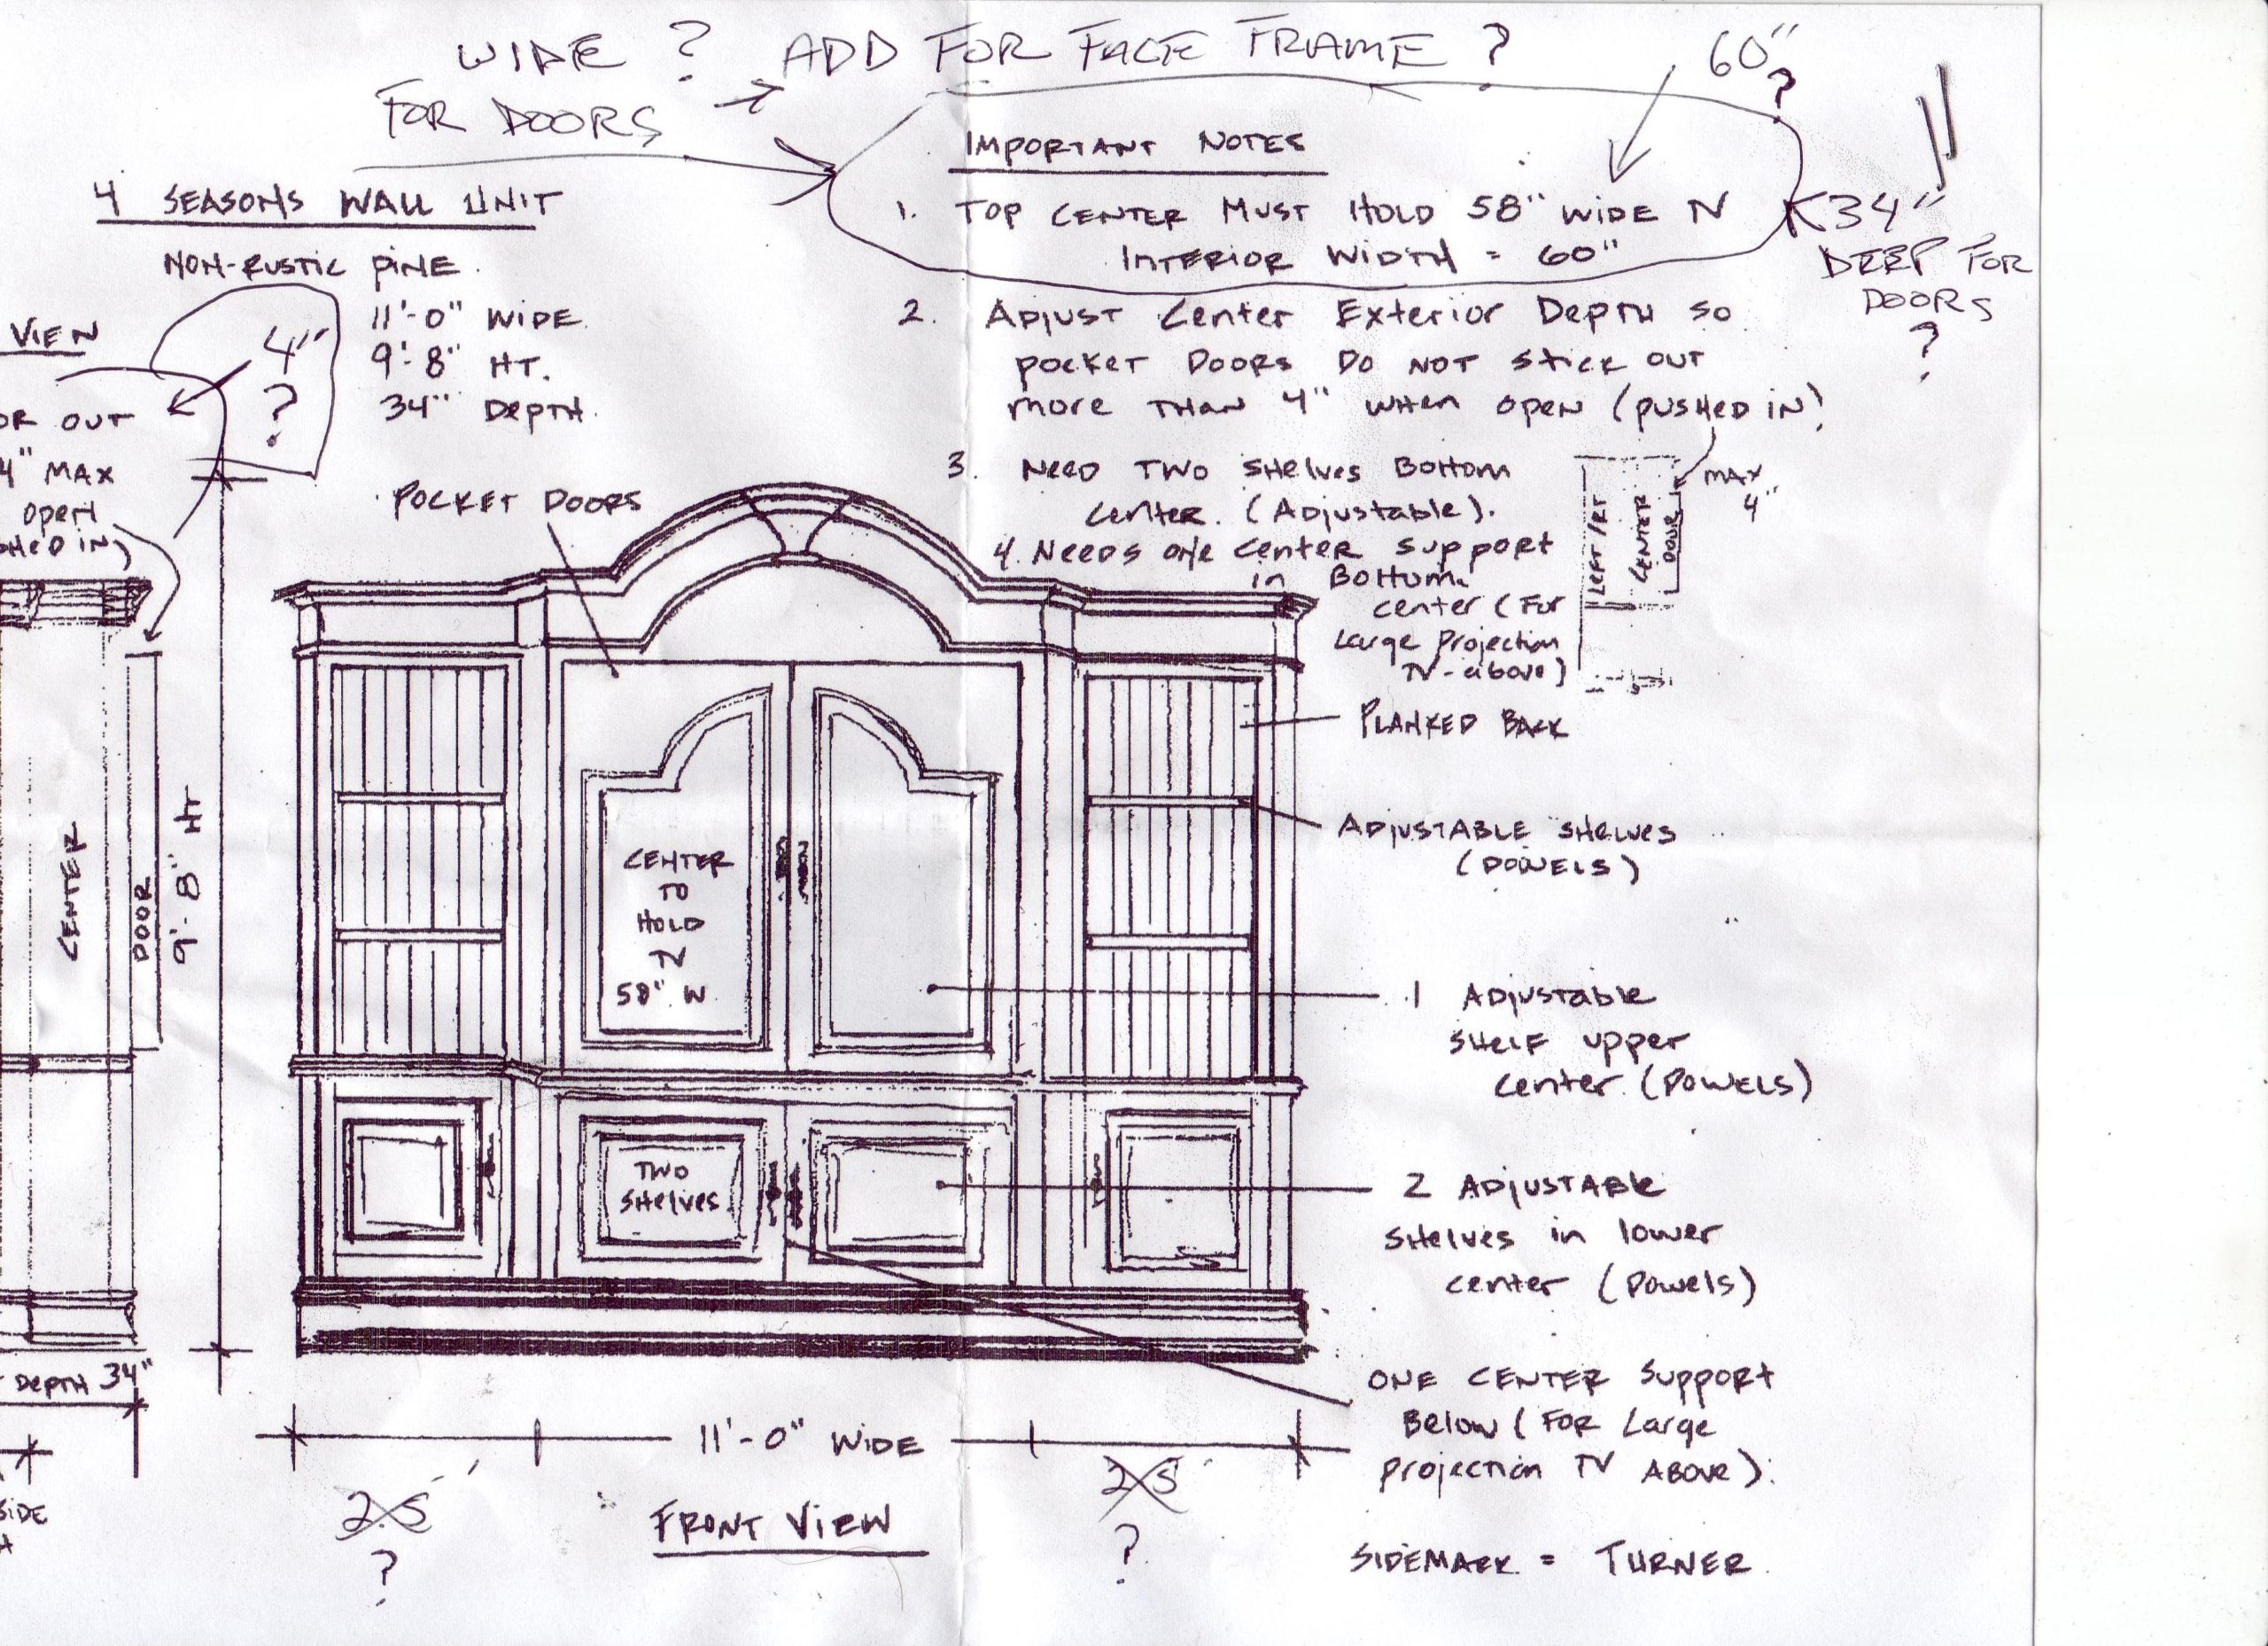 WIDE ? ADD FOR FACE FRAME ? 60" ?
FOR DOORS
IMPORTANT NOTES
1. TOP CENTER MUST HOLD 58" WIDE TV
INTERIOR WIDTH = 60"
34"
DEEP FOR
DOORS
?
2. ADJUST CENTER EXTERIOR DEPTH SO
POCKET DOORS DO NOT STICK OUT
MORE THAN 4" WHEN OPEN (PUSHED IN)
3. NEED TWO SHELVES BOTTOM
CENTER. (ADJUSTABLE).
4. NEEDS ONE CENTER SUPPORT
IN BOTTOM
CENTER (FOR
LARGE PROJECTION
TV-ABOVE)
LEFT/RT
CENTER
DOOR
MAX
4"
4 SEASONS WALL UNIT
NON-RUSTIC PINE
11'-0" WIDE
9'-8" HT.
34" DEPTH
VIEW
4"
?
OR OUT
4" MAX
OPEN
SHED IN)
POCKET DOORS
CENTER
DOOR
9'-8" HT
CENTER
TO
HOLD
TV
58" W
TWO
SHELVES
PLANKED BACK
ADJUSTABLE SHELVES
(DOWELS)
1 ADJUSTABLE
SHELF UPPER
CENTER (DOWELS)
2 ADJUSTABLE
SHELVES IN LOWER
CENTER (DOWELS)
ONE CENTER SUPPORT
BELOW (FOR LARGE
PROJECTION TV ABOVE).
DEPTH 34"
SIDE
11'-0" WIDE
25
?
25
?
FRONT VIEW
SIDEMARK = TURNER